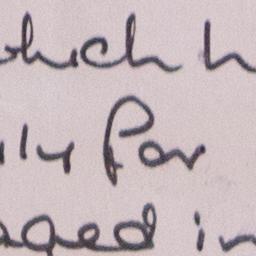 which h
ily for
aged in